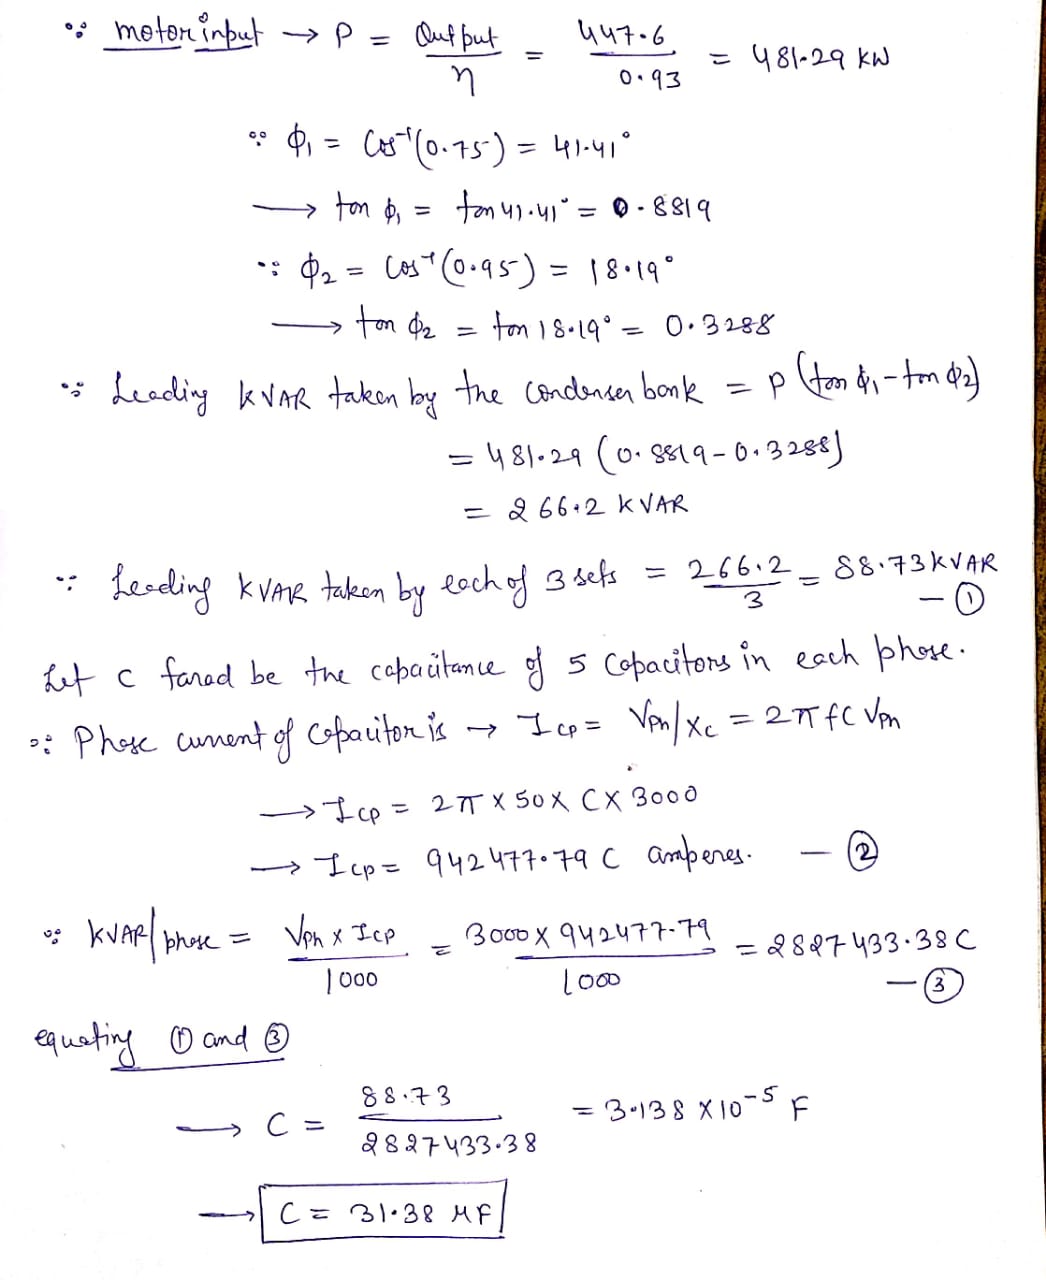 ∵ motor input → P = Output / η = 447.6 / 0.93 = 481.29 KW
∵ ϕ₁ = Cos⁻¹(0.75) = 41.41°
→ tan ϕ₁ = tan 41.41° = 0.8819
∵ ϕ₂ = Cos⁻¹(0.95) = 18.19°
→ tan ϕ₂ = tan 18.19° = 0.3288
∵ Leading KVAR taken by the condenser bank = P (tan ϕ₁ - tan ϕ₂)
= 481.29 (0.8819 - 0.3288)
= 266.2 KVAR
∵ Leading KVAR taken by each of 3 sets = 266.2 / 3 = 88.73 KVAR - ①
Let C farad be the capacitance of 5 Capacitors in each phase.
∵ Phase current of Capacitor is → Icp = Vph/Xc = 2πfC Vph
→ Icp = 2π × 50 × C × 3000
→ Icp = 942477.79 C amperes. - ②
∵ KVAR/phase = Vph × Icp / 1000 = 3000 × 942477.79 / 1000 = 2827433.38 C - ③
equating ① and ③
→ C = 88.73 / 2827433.38 = 3.138 × 10⁻⁵ F
→ C = 31.38 μF